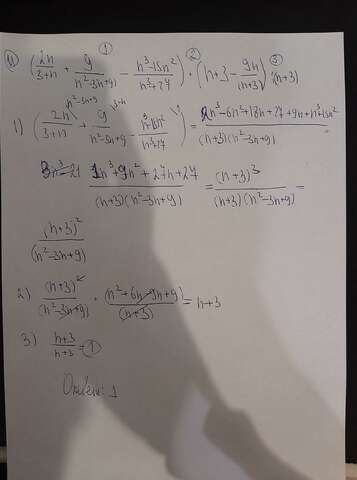 1) (2n/(3+n) + 9/(n²-3n+9) - (n³-15n²)/(n³+27)) · (n+3 - 9n/(n+3)) : (n+3)
1) (2n/(3+n) + 9/(n²-3n+9) - (n³-15n²)/(n³+27)) = (2n³-6n²+18n+27+9n+n³+15n²)/((n+3)(n²-3n+9)) =
(1n³+9n²+27n+27)/((n+3)(n²-3n+9)) = (n+3)³/((n+3)(n²-3n+9)) =
(n+3)²/(n²-3n+9)
2) (n+3)²/(n²-3n+9) · (n²+6n-9n+9)/(n+3) = n+3
3) (n+3)/(n+3) = 1
Ответ: 1